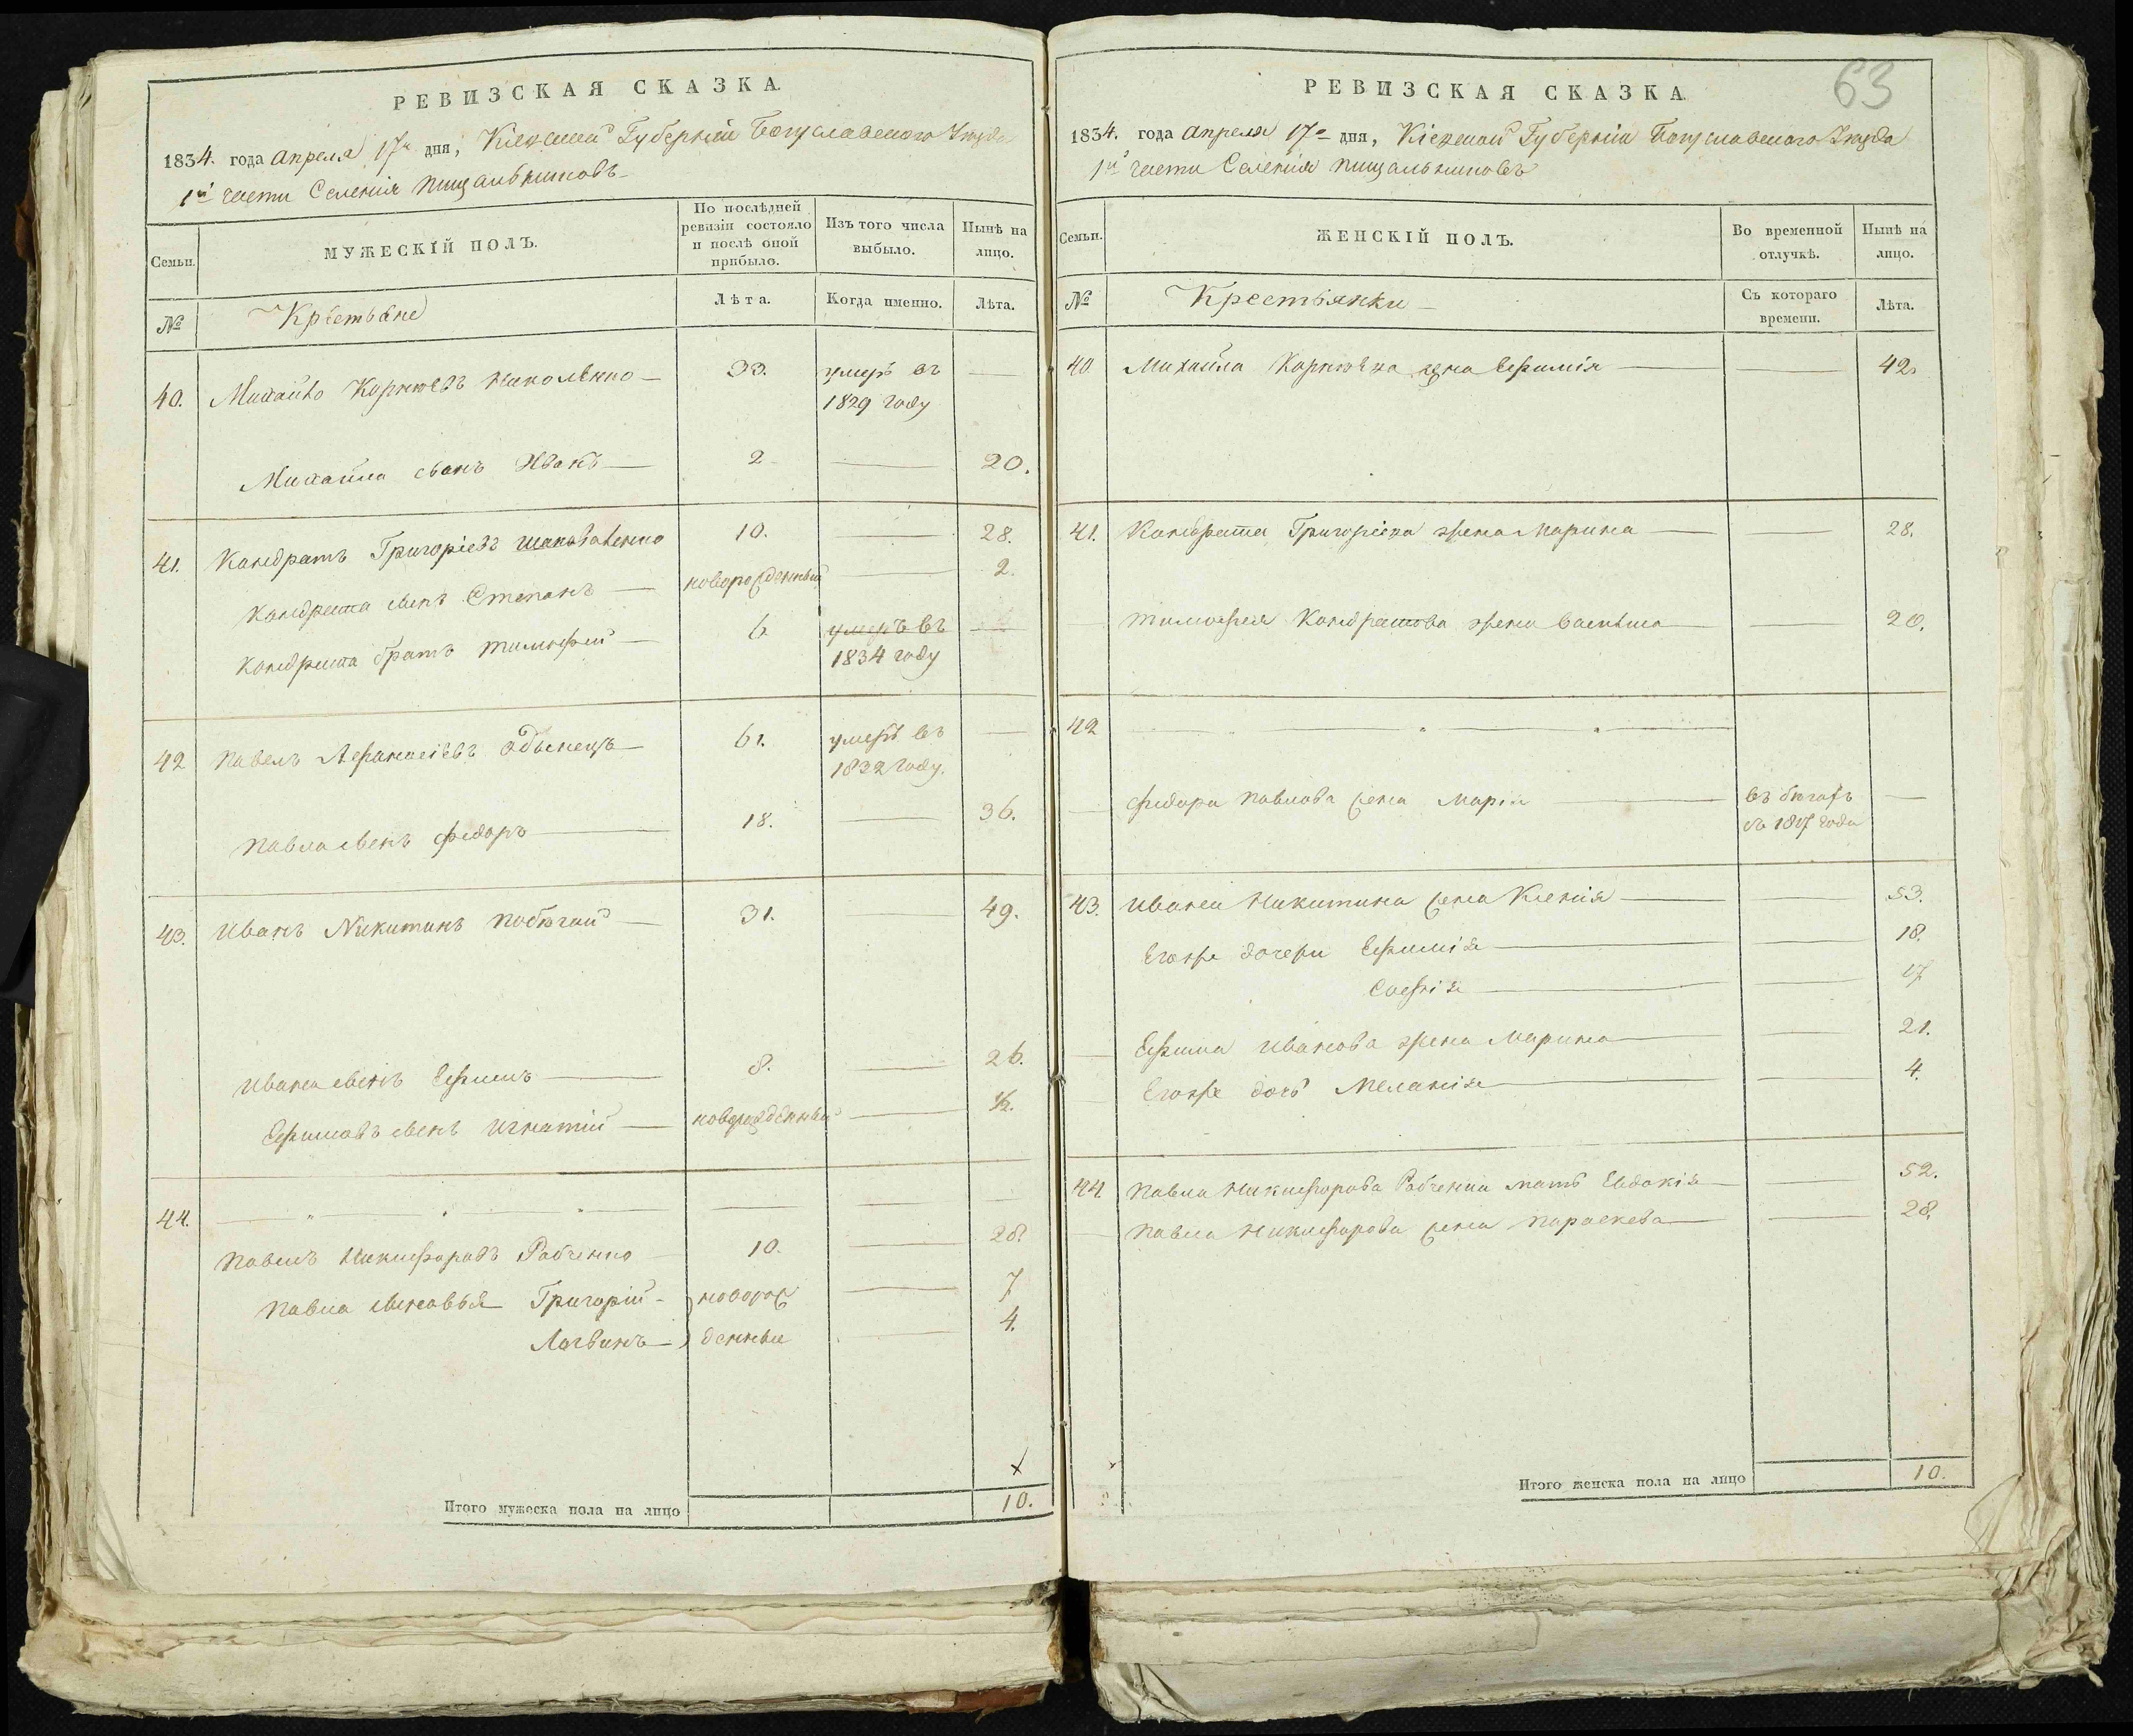 РЕВИЗСКАЯ СКАЗКА.
1834. года Апреля 17го дня, Кіевской Губерніи Богуславскаго Уезда
1й части Селенія Пищальниковъ
Семьи.
МУЖЕСКІЙ ПОЛЪ.
По послѣдней ревизіи состояло и послѣ оной прибыло.
Изъ того числа выбыло.
Нынѣ на лицо.
№
Крестьяне
Лѣта.
Когда именно.
Лѣта.
40. Михайло Корнѣевъ Николенко 33. умеръ въ
1829 году
Михайла сынъ Иванъ 2 20.
41. Кондратъ Григоріевъ Шаповаленко 10. 28.
Кондрата сынъ Степанъ новорожденный 2.
Кондрата братъ Тимофей 6. умеръ въ
1834 году
42 Павелъ Афанасіевъ Одынецъ 61. умеръ въ
1832 году.
Павла сынъ Федоръ 18. 36.
43. Иванъ Никитинъ Побѣгай 31. 49.
Ивана сынъ Ефимъ 8. 26.
Ефимовъ сынъ Игнатій новорожденный ½.
44.
Павелъ Никифоровъ Рабченко 10. 28.
Павла сыновья Григорій новорож 7
Логвинъ денные 4.
Итого мужеска пола на лицо 10.
63
РЕВИЗСКАЯ СКАЗКА.
1834. года Апреля 17го дня, Кіевской Губерніи Богуславскаго Уезда
1й части Селенія Пищальниковъ
Семьи.
ЖЕНСКІЙ ПОЛЪ.
Во временной отлучкѣ.
Нынѣ на лицо.
№
Крестьянки
Съ котораго времени.
Лѣта.
40. Михайла Корнѣева жена Ефимія 42.
41. Кондрата Григоріева жена Марина 28.
Тимофея Кондратова жена 20.
42
Федора Павлова жена Марія въ бѣгахъ
съ 1817 года
43. Ивана Никитина жена Ксенія 53.
Егоже дочери Ефимія 18.
Софія 17
Ефима Иванова жена Марина 21.
Егоже дочь Меланія 4.
44. Павла Никифорова Рабченка мать Евдокія 52.
Павла Никифорова жена Параскева 28.
Итого женска пола на лицо 10.